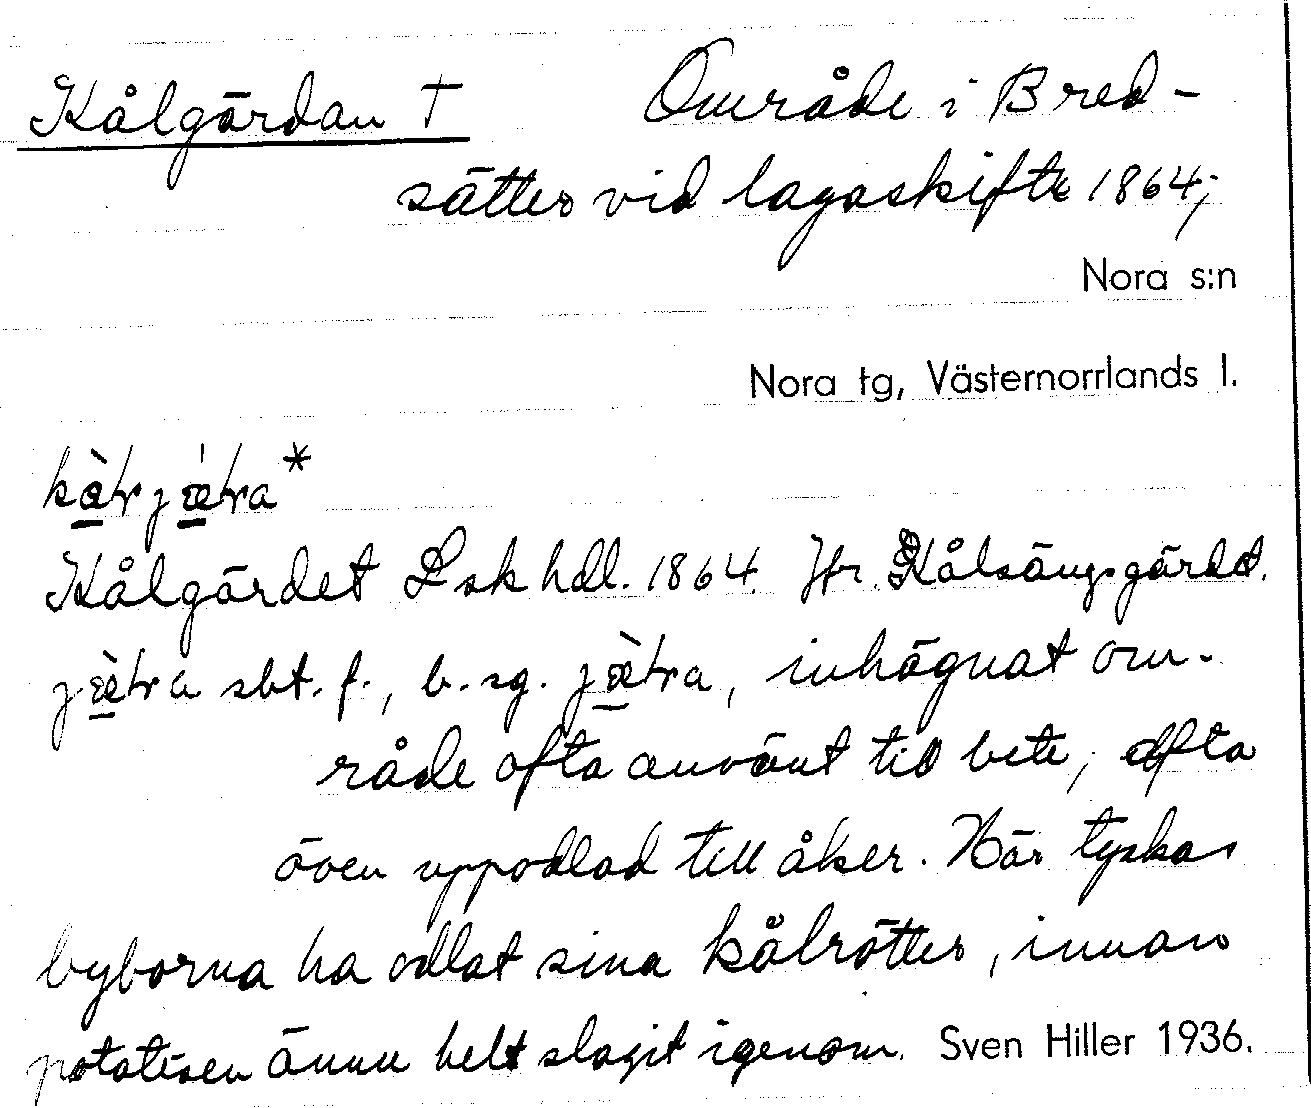 Kålgärdan † Område i Bred-
sätter vid lagaskifte 1864;
Nora s:n
Nora tg, Västernorrlands l.
Kålgärdet Lsk hdl. 1864. Jfr. Kålsängsgärdet.
sbt. f., b. sg. , inhägnat om-
råde ofta använt till bete, ofta
även uppodlad till åker. Här tyckas
byborna ha odlat sina kålrötter, innan
potatisen ännu helt slagit igenom. Sven Hiller 1936.